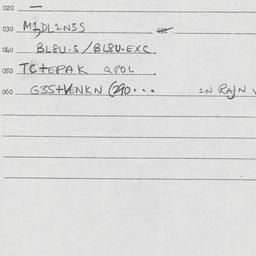 020 —
030 M1DL1NSS
040 BL8U.S / BL8U.EXC
050 TC+EPAK QPOL
060 G35+VENKN (290... IN RAJN